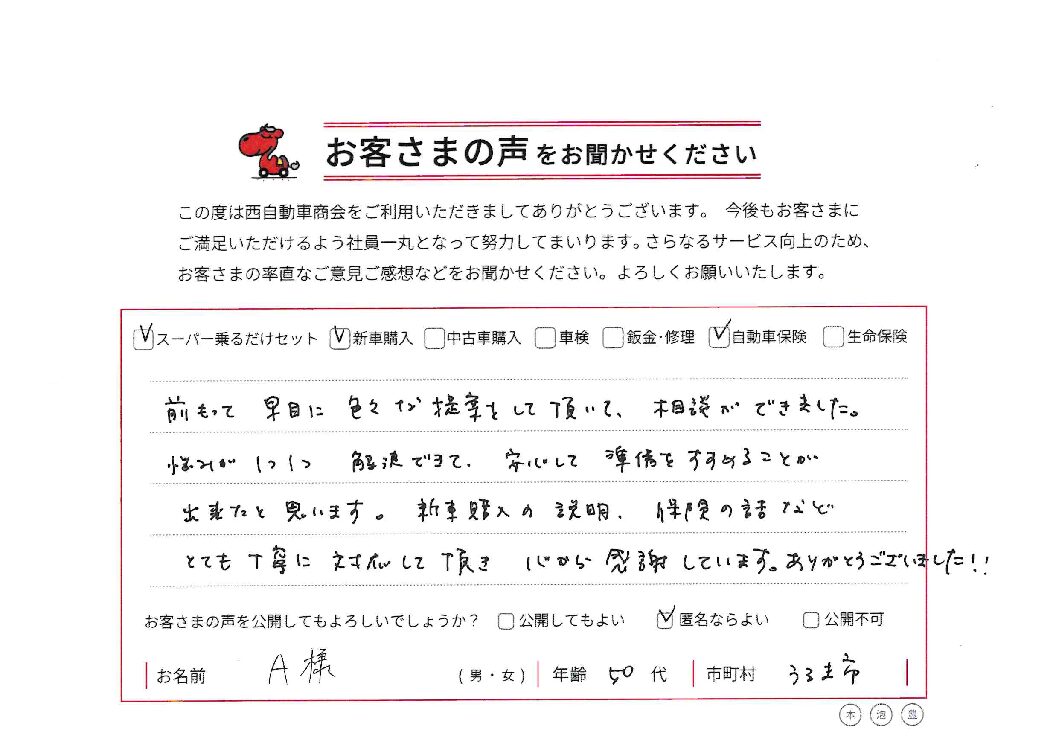 お客さまの声をお聞かせください
この度は西自動車商会をご利用いただきましてありがとうございます。 今後もお客さまに
ご満足いただけるよう社員一丸となって努力してまいります。さらなるサービス向上のため、
お客さまの率直なご意見ご感想などをお聞かせください。よろしくお願いいたします。
スーパー乗るだけセット 新車購入 中古車購入 車検 鈑金・修理 自動車保険 生命保険
前もって 早目に 色々な提案をして頂いて、 相談ができました。
悩みが 1つ1つ 解決できて、安心して 準備をすすめることが
出来たと思います。 新車購入の説明、保険の話など
とても丁寧に対応して頂き 心から感謝しています。ありがとうございました!!
お客さまの声を公開してもよろしいでしょうか? 公開してもよい 匿名ならよい 公開不可
お名前 A様 (男・女) 年齢 50代 市町村 うるま市
本